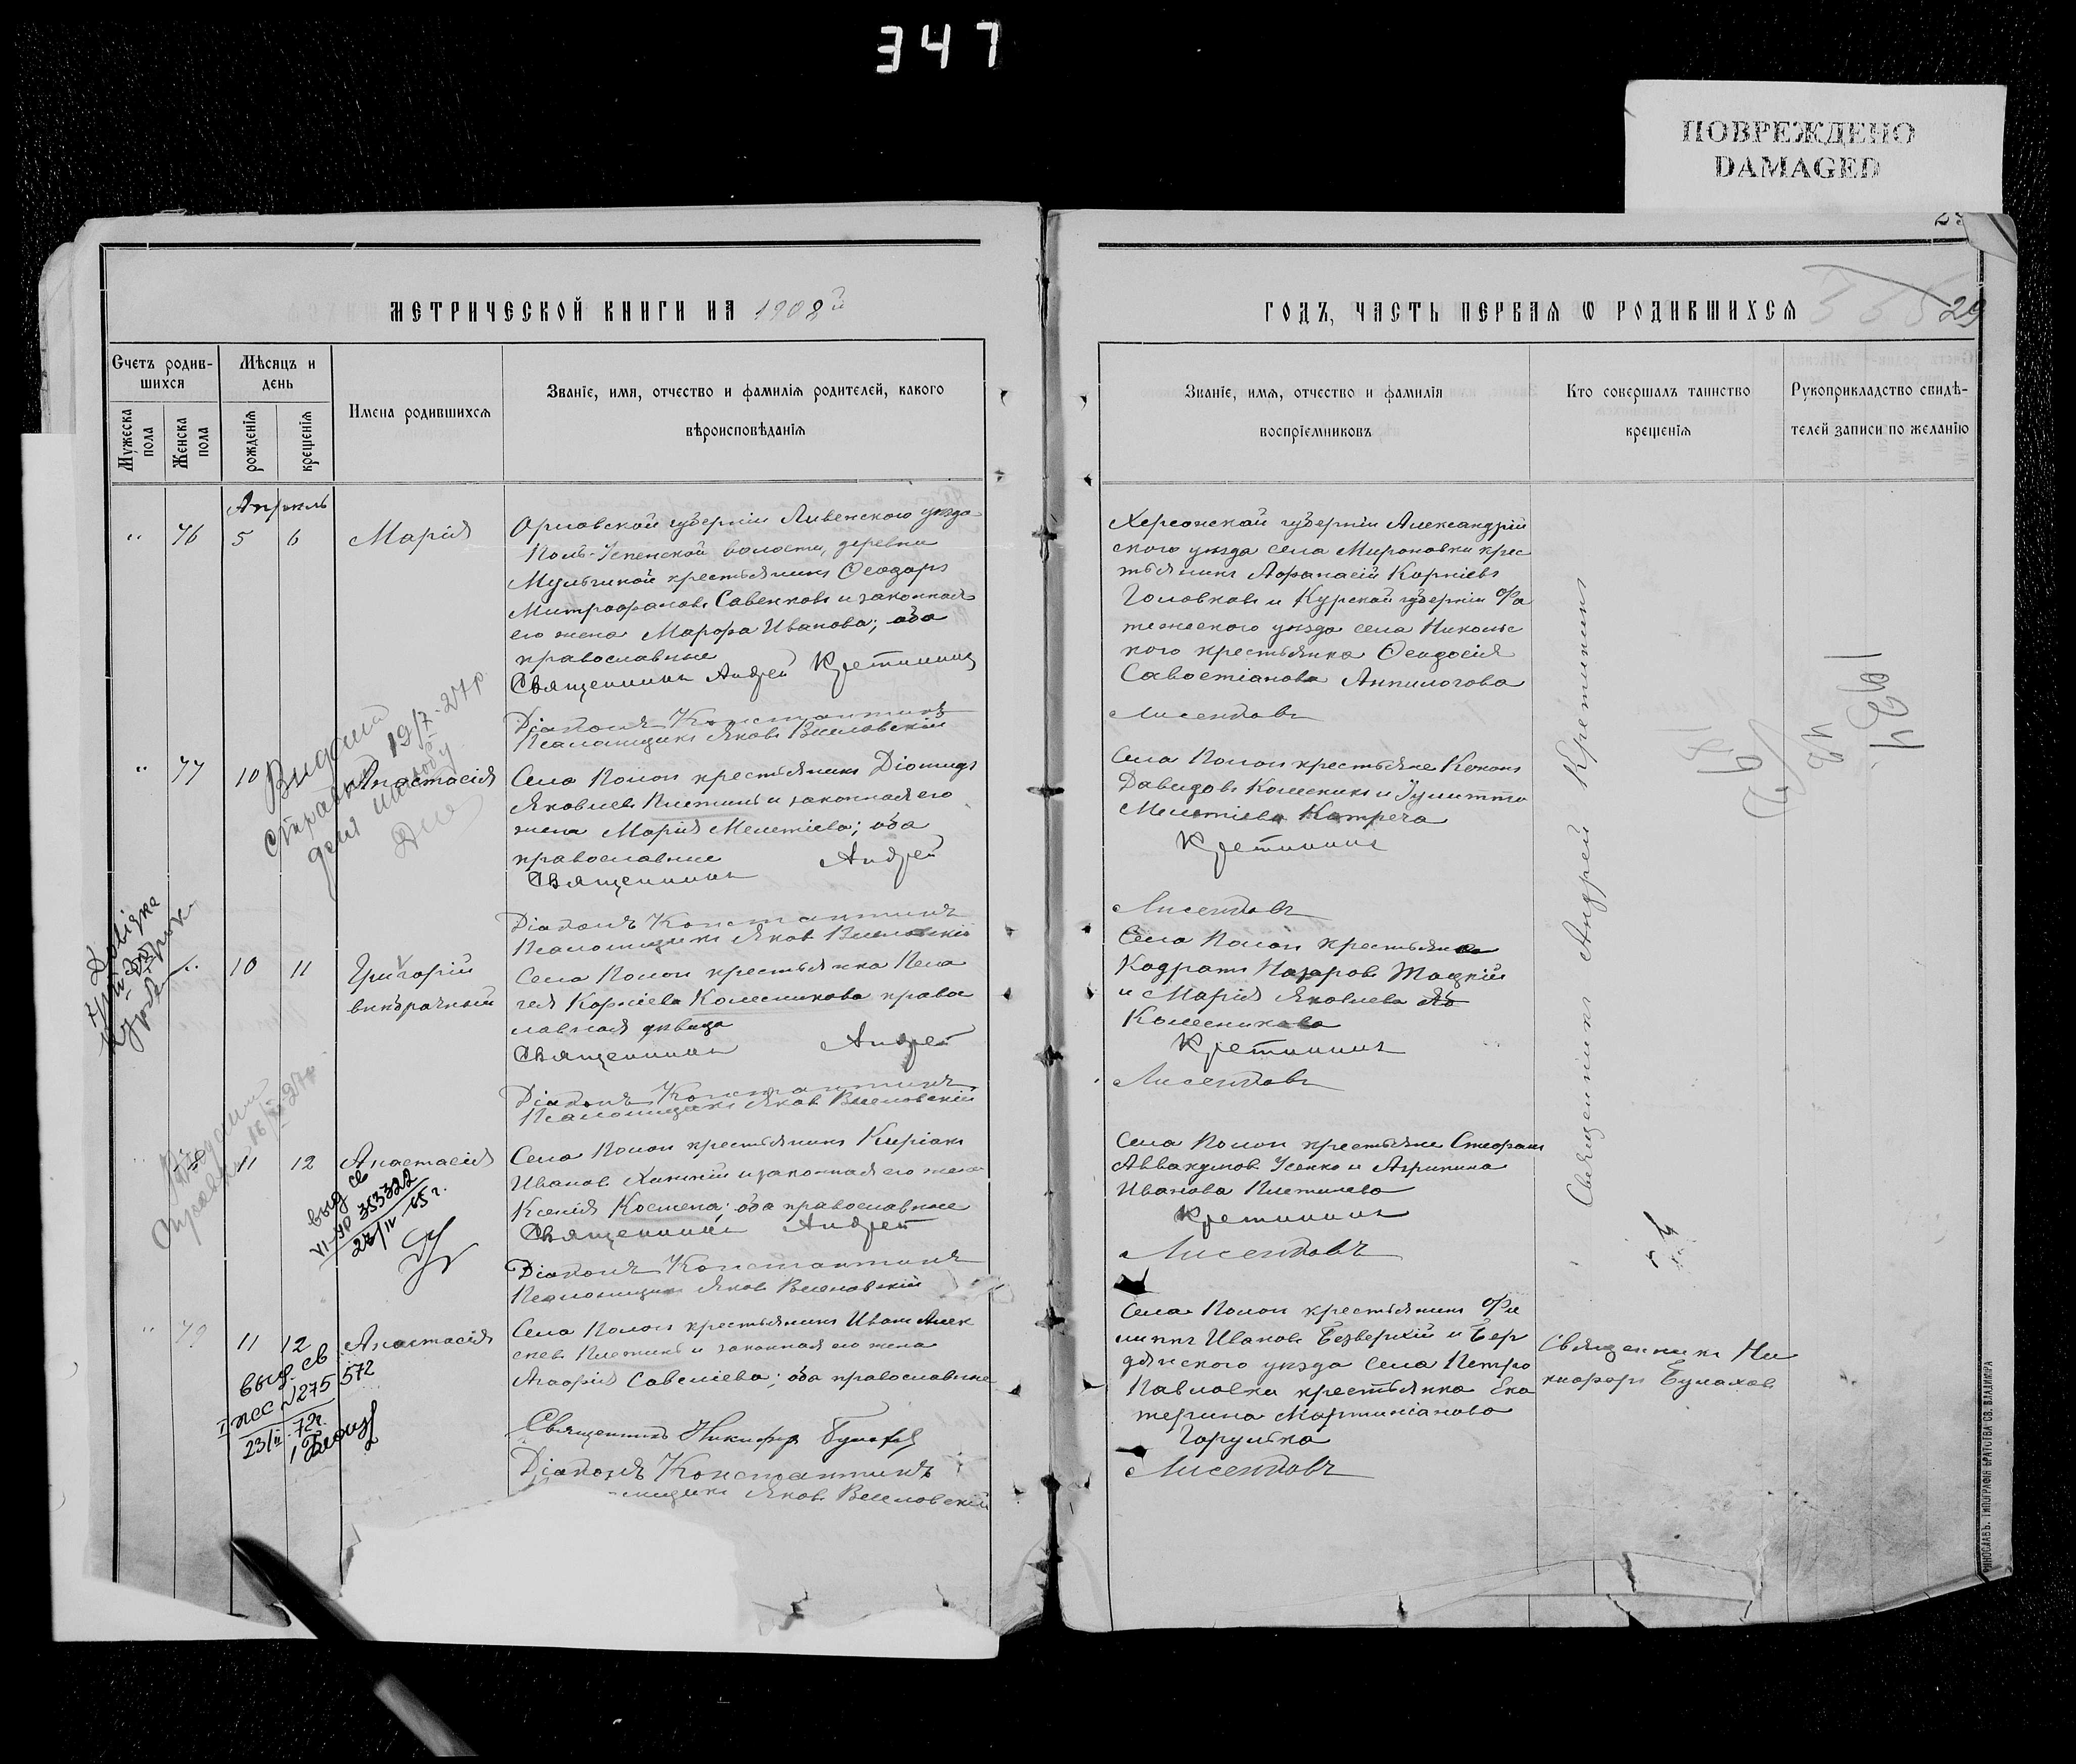 347
ПОВРЕЖДЕНО
DAMAGED
МЕТРИЧЕСКОЙ КНИГИ НА 1908й
ГОДЪ, ЧАСТЬ ПЕРВАЯ Ѡ РОДИВШИХСЯ
29
Счетъ родив-
шихся
Мѣсяцъ и
день
Мужеска
пола
Женска
пола
рожденія
крещенія
Имена родившихся
Званіе, имя, отчество и фамилія родителей, какого
вѣроисповѣданія
Званіе, имя, отчество и фамилія
воспріемниковъ
Кто совершалъ таинство
крещенія
Рукоприкладство свидѣ-
телей записи по желанію
Апрель
" 76 5 6 Марія
Орловской губерніи Ливенского уѣзда
волости, деревни
крестьянинъ Ѳеодоръ
Митрофановъ Савенковъ и законная
его жена Марфа Иванова; оба
православные
Священникъ Андрей Кретининъ
Діаконъ Константинъ
Псаломщикъ Яковъ Веселовскій
Херсонской губерніи Александрій
ского уѣзда села Мироновки крес
тьянинъ Афанасій Корніевъ
Головковъ и Курской губерніи Фа
тежского уѣзда села Никольс
кого крестьянка Ѳеодосія
Савостіанова Анпилогова
Лисенковъ
" 77 10 Анастасія
Села Пологи крестьянинъ Діомидъ
Яковлевъ Плетинь и законная его
жена Марія Мелетіева; оба
православные
Священникъ Андрей
Діаконъ Константинъ
Псаломщикъ Яковъ Веселовскій
Села Пологи крестьяне Кононъ
Давидовъ Колесникъ и Іулитта
Мелетіева Катреча
Кретининъ
Лисенковъ
10 11 Григорій
внѣбрачный
Села Пологи крестьянка Пела
гея Корніева Колесникова правос
лавная девица
Священникъ Андрей
Діаконъ Константинъ
Псаломщикъ Яковъ Веселовскій
Села Пологи крестьяне
Кодратъ Назаровъ Тацкій
и Марія Яковлева
Колесникова
Кретининъ
Лисенковъ
11 12 Анастасія
Села Пологи крестьянинъ Киріакъ
Ивановъ и законная его жена
Ксенія Космена; оба православные
Священникъ Андрей
Діаконъ Константинъ
Псаломщикъ Яковъ Веселовскій
Села Пологи крестьяне Стефанъ
Аввакумовъ Усенко и Агрипина
Иванова Плетинева
Кретининъ
Лисенковъ
" 79 11 12 Анастасія
Села Пологи крестьянинъ Иванъ Алек
сеевъ Плетинь и законная его жена
Агафія Савеліева; оба православные
Священникъ Никифоръ Булахов
Діаконъ Константинъ
Яковъ Веселовскій
Села Пологи крестьянинъ Фи
липпъ Ивановъ Безверхій и Бер
дянского уѣзда села Петро
Павловки крестьянка Ека
терина Мартиніанова
Горулько
Лисенковъ
Священникъ Андрей Кретининъ
Священникъ Ни
кифоръ Булахов
Выданий
19/7-27р
Довідка
выд св
VI-ЯР 353322
23/IV 65 г.
выд. св
1275 572
23/II 72г.
1961